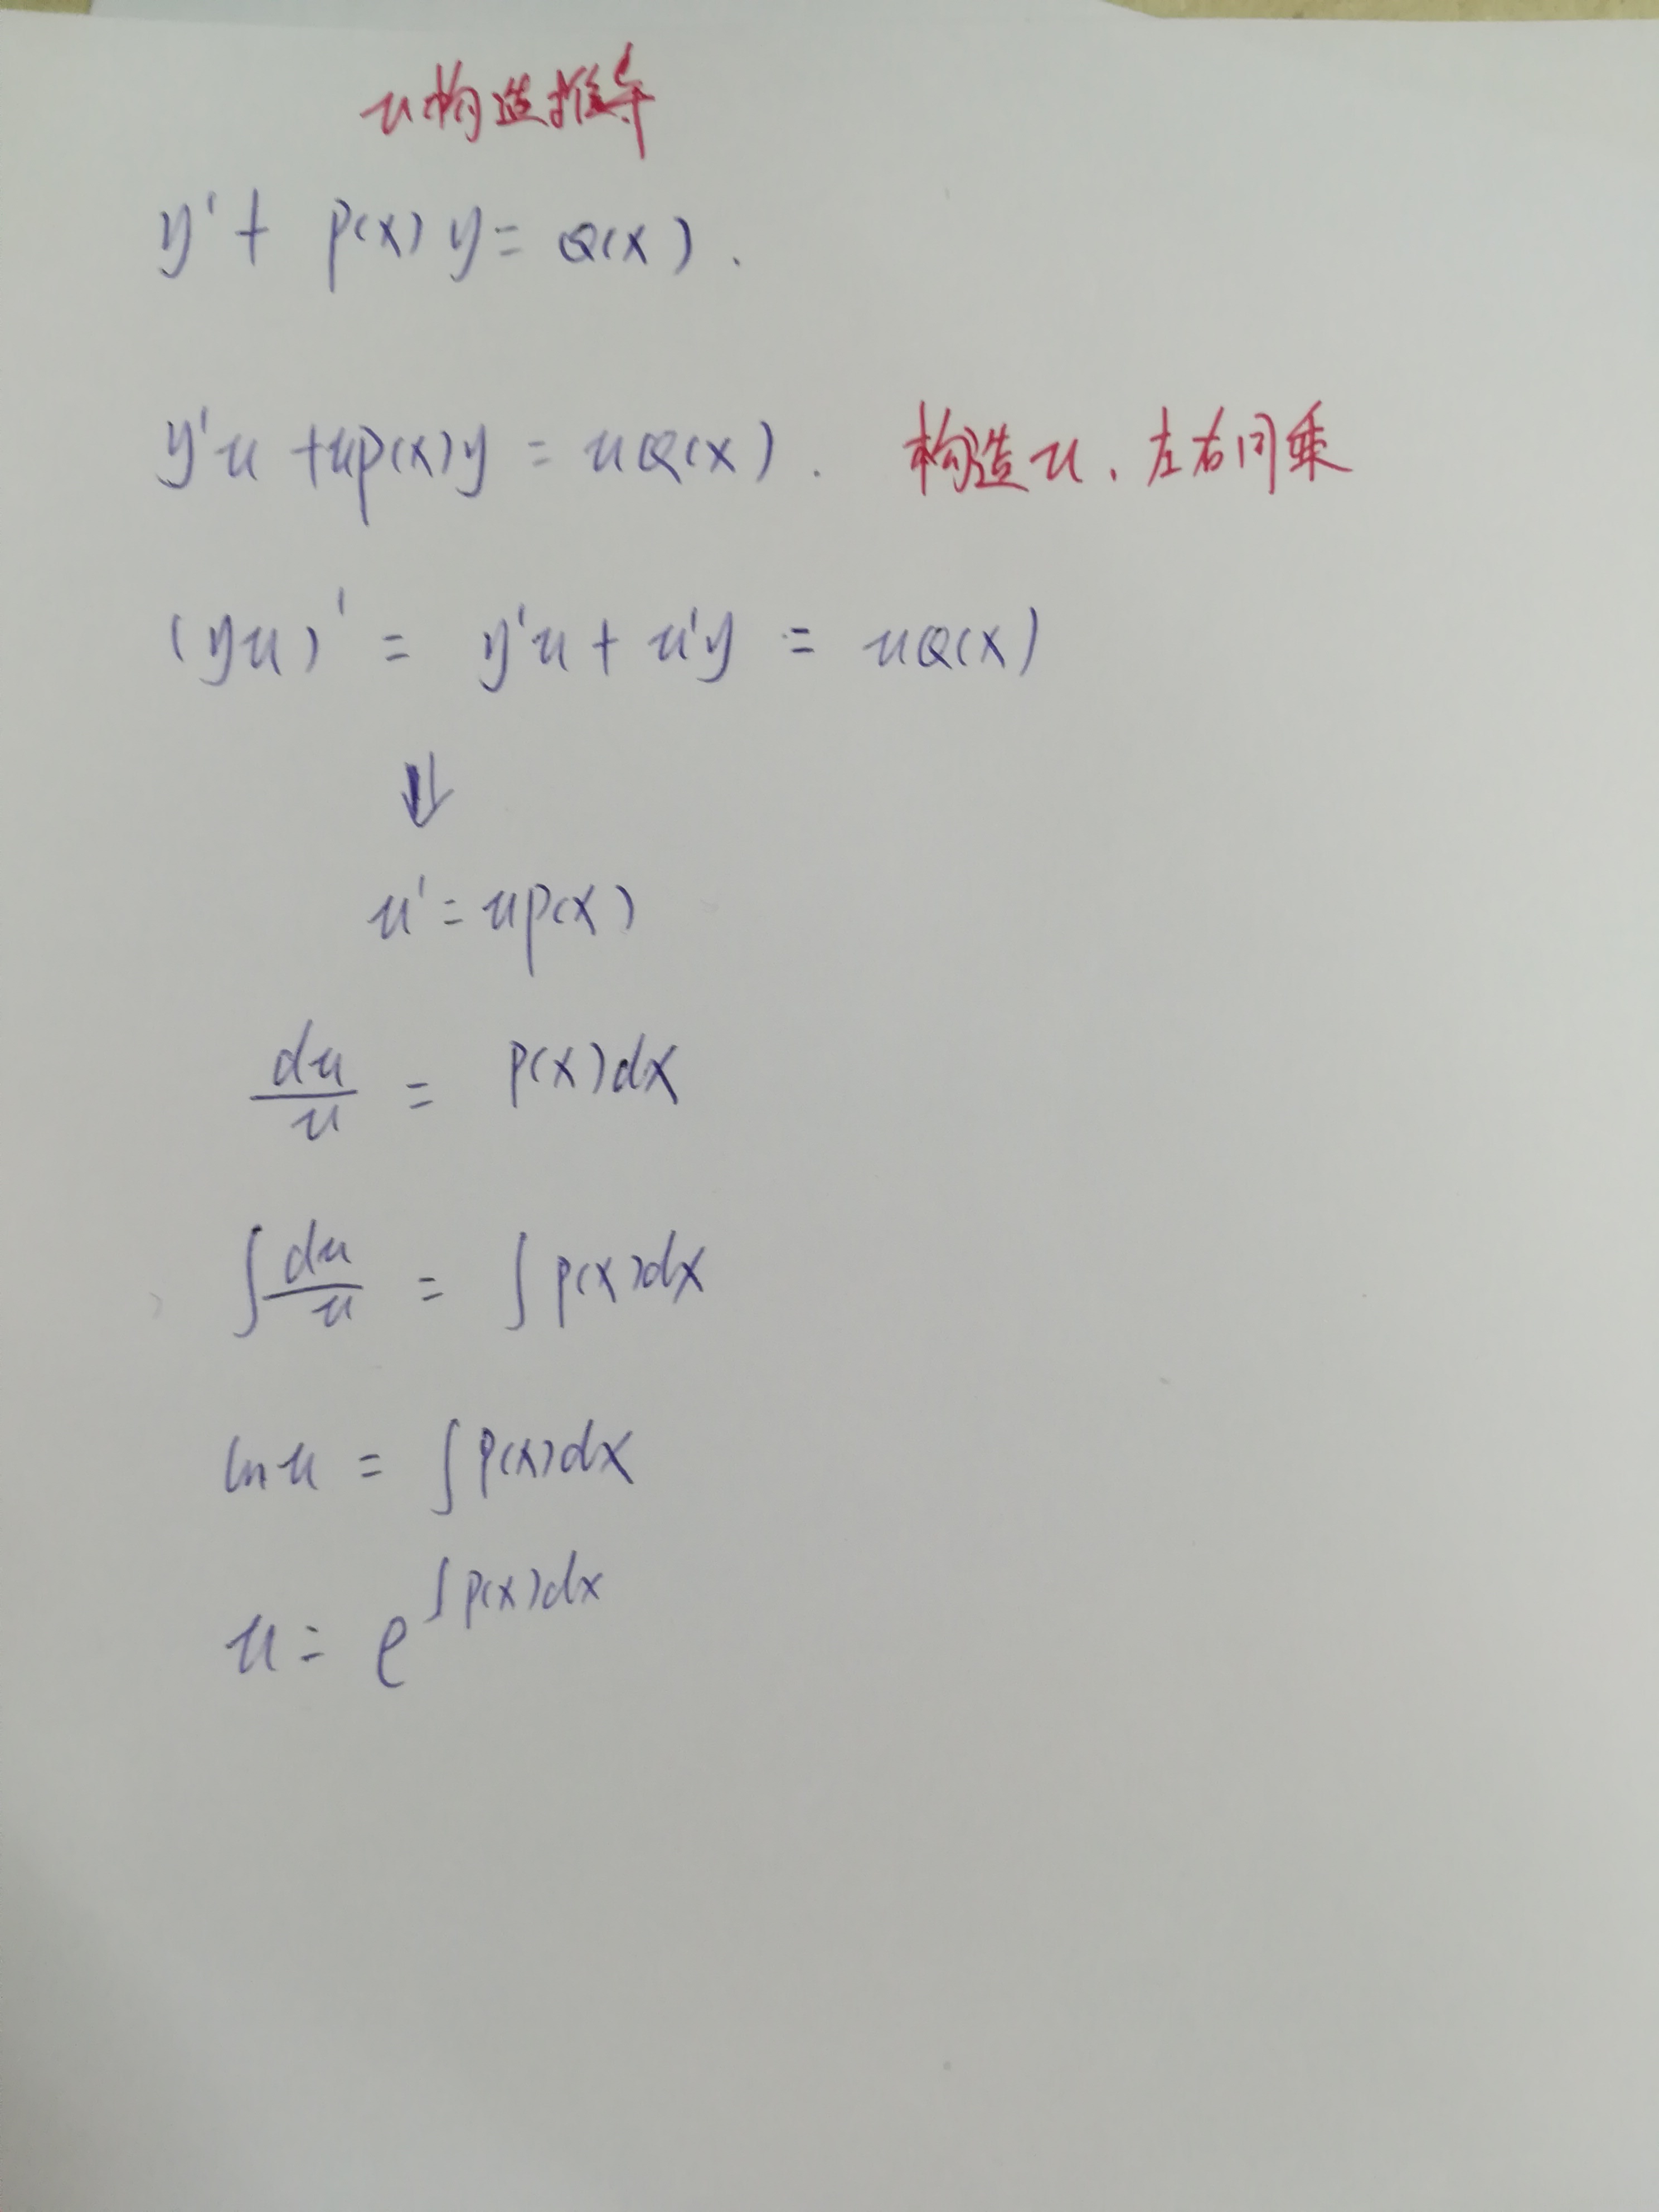 u构造推导
y' + p(x) y = Q(x) .
y'u + up(x)y = uQ(x) . 构造u、左右同乘
(yu)' = y'u + u'y = uQ(x)
⇓
u' = up(x)
du/u = p(x)dx
∫ du/u = ∫ p(x)dx
ln u = ∫ p(x)dx
u = e^∫p(x)dx